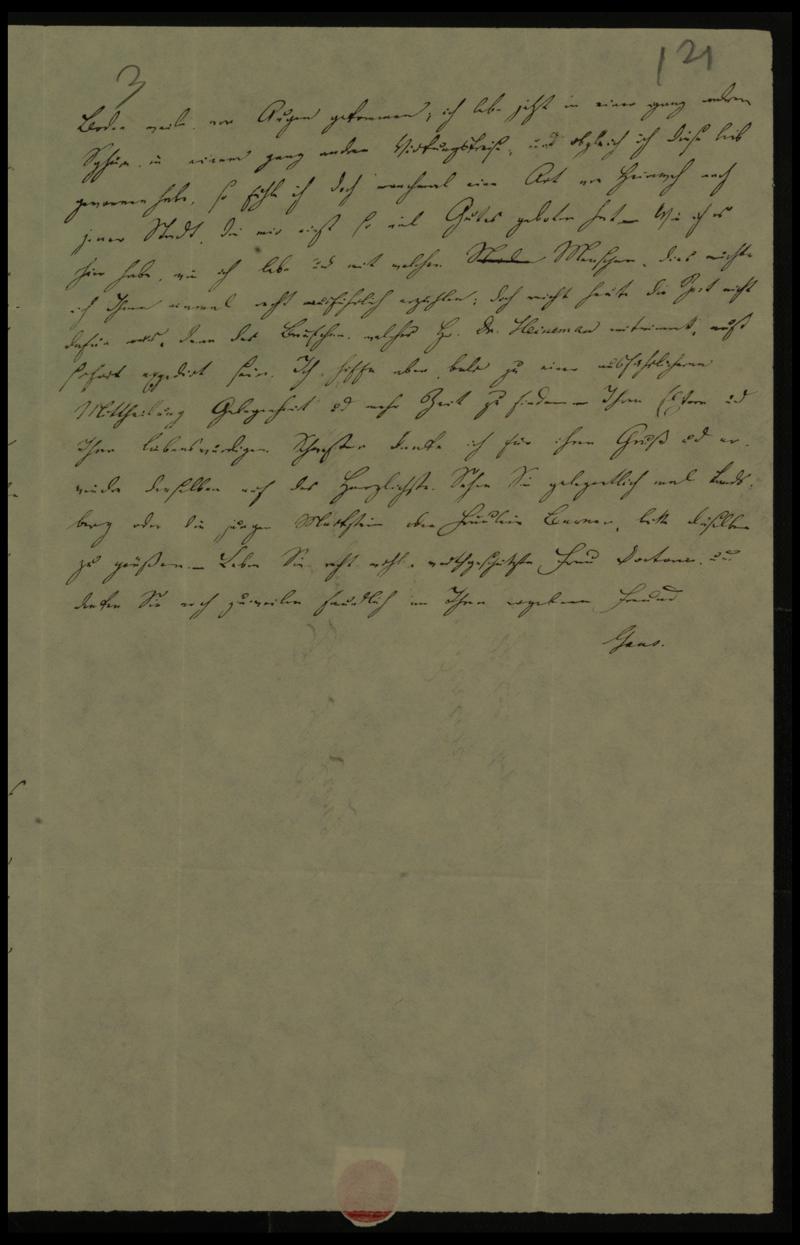 3
121
Boden weile, vor Augen gekommen; ich lebe jetzt in einer ganz andern
Sphäre, in einem ganz anden Wirkungskreise, und obgleich ich diese lieb
gewonnen habe, so fühle ich doch manchmal eine Art von Heimweh nach
jener Stadt, die mir einst so viel Gutes geboten hat. – Wie ich es
hier habe, wie ich lebe und mit welchen Menschen, dies möchte
ich Ihnen einmal recht ausführlich erzählen; doch reicht heute die Zeit nicht
dafür aus, denn das Briefchen, welches Hr. Dr. Heineman mitnimmt, muß
sofort expedirt sein. Ich hoffe aber, bald zu einer ausführlicheren
Mittheilung Gelegenheit und mehr Zeit zu finden. – Ihren Eltern und
Ihrer liebenswürdigen Schwester danke ich für ihren Gruß und er-
wiedre denselben auf das Herzlichste. Sehen Sie gelegentlich mal Lands-
berg oder die jungen oder Fräulein, bitte dieselben
zu grüßen. – Leben Sie recht wohl, werthgeschätzte Frau Doctorin, und
denken Sie noch zuweilen freundlich an Ihren ergebenen Freund